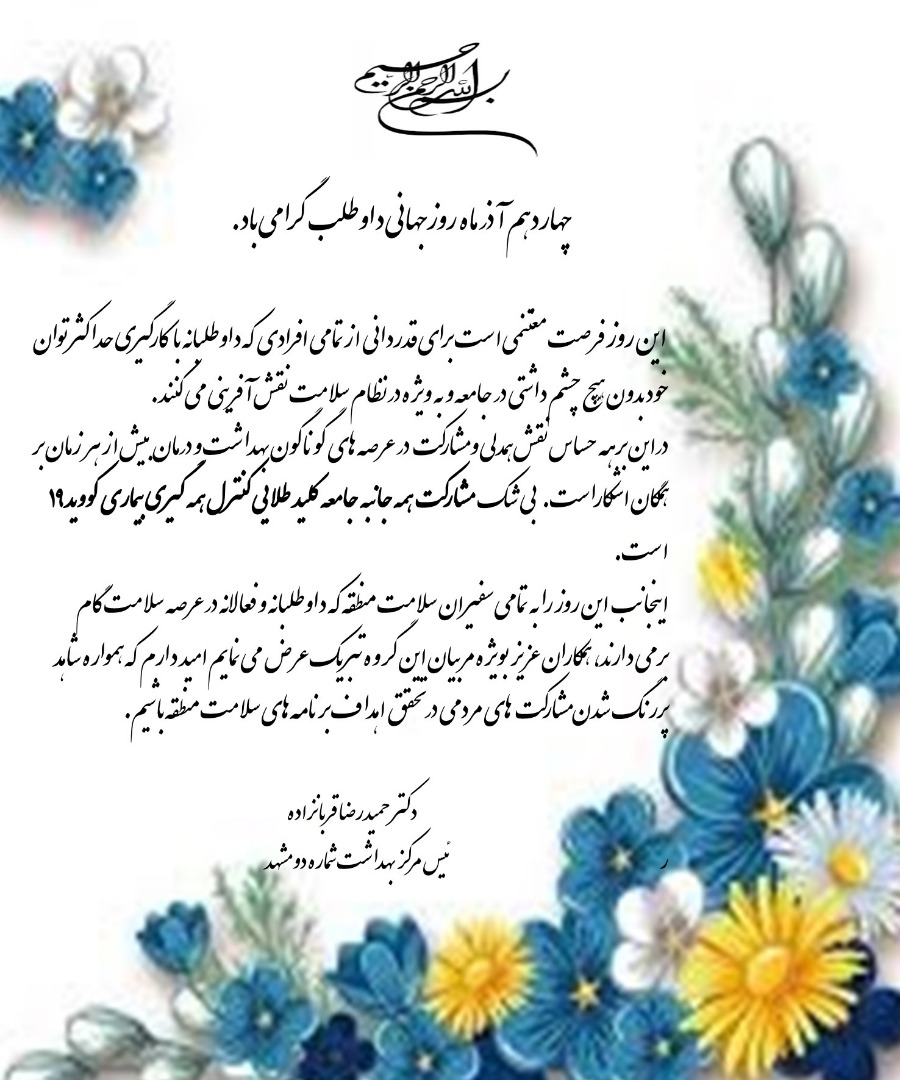 بسم الله الرحمن الرحیم
چهاردهم آذر ماه روز جهانی داوطلب گرامی باد.
این روز فرصت مغتنمی است برای قدردانی از تمامی افرادی که داوطلبانه با کارگیری حداکثر توان
خود بدون هیچ چشم داشتی در جامعه و به ویژه در نظام سلامت نقش آفرینی می کنند.
در این برهه حساس نقش همدلی و مشارکت در عرصه های گوناگون بهداشت و درمان بیش از هر زمان بر
همگان اشکار است. بی شک مشارکت همه جانبه جامعه کلید طلایی کنترل همه گیری بیماری کووید۱۹
است.
اینجانب این روز را به تمامی سفیران سلامت منطقه که داوطلبانه و فعالانه در عرصه سلامت گام
برمی دارند، همکاران عزیز بویژه مربیان این گروه تبریک عرض می نمایم امید دارم که همواره شاهد
پررنگ شدن مشارکت های مردمی در تحقق اهداف برنامه های سلامت منطقه باشیم.
دکتر حمیدرضا قربانزاده
ر ئیس مرکز بهداشت شماره دو مشهد